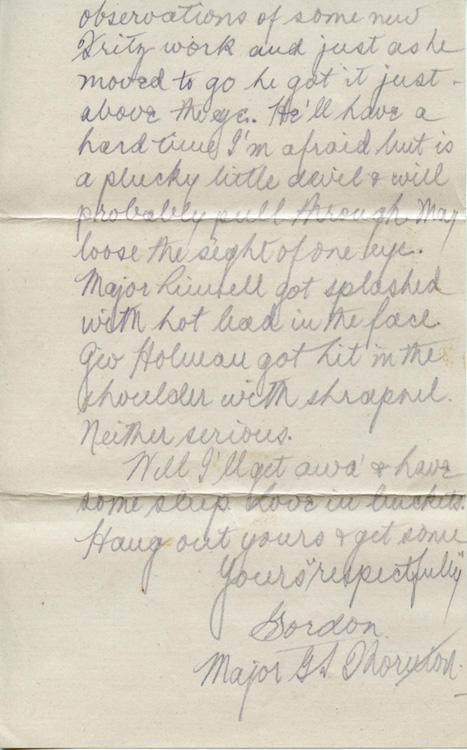 observations of some new
Fritz work and just as he
moved to go he got it just
above the eye. He'll have a
hard time I'm afraid but is
a plucky little devil & will
probably pull through. May
loose the sight of one eye.
Major got splashed
with hot lead in the face.
Geo Holman got hit in the
shoulder with shrapnel.
Neither serious.
Well I'll get awa' & have
some sleep. Love in buckets.
Hang out yours & get some
Yours "respectfully"
Gordon.
Major G S Thornton.